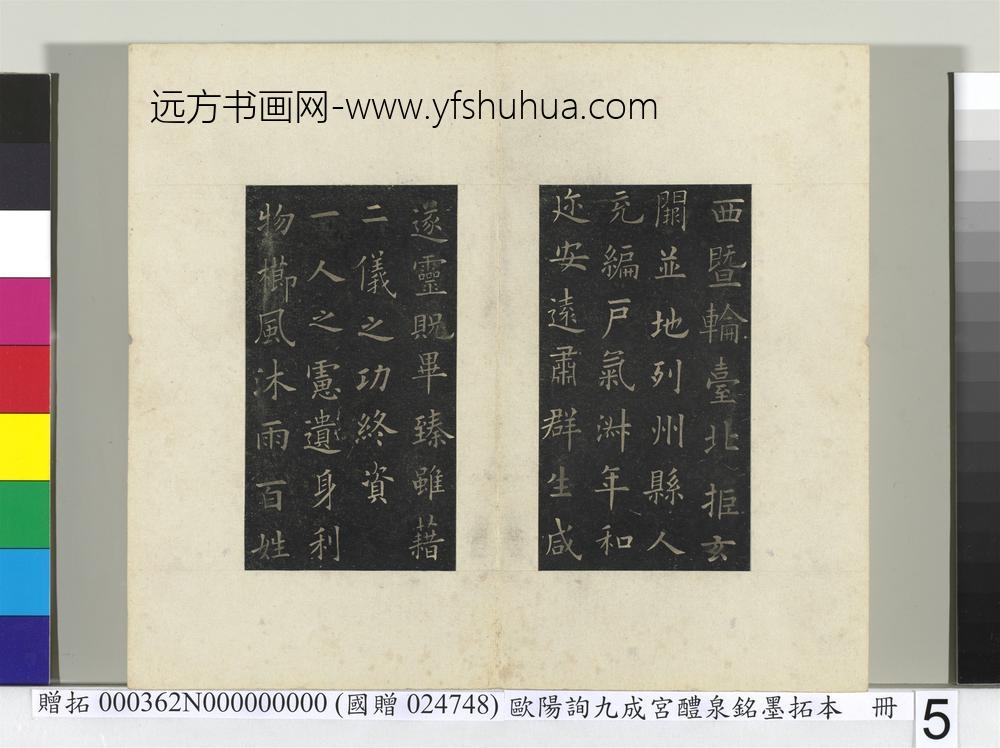 远方书画网-www.yfshuhua.com
西暨輪臺北拒玄
闕並地列州縣人
充編戸氣淋年和
迩安遠肅群生咸
遂靈貺畢臻雖藉
二儀之功終資
一人之憲遺身利
物櫛風沐雨百姓
贈拓 000362N000000000 (國贈 024748) 歐陽詢九成宮醴泉銘墨拓本 冊
5